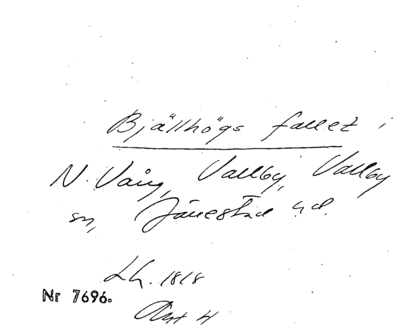 Bjällhögs fallet i
N. Vång, Vallby, Vallby
sn, Järrestad hd.
Lh. 1818
Nr 7696.
Art H